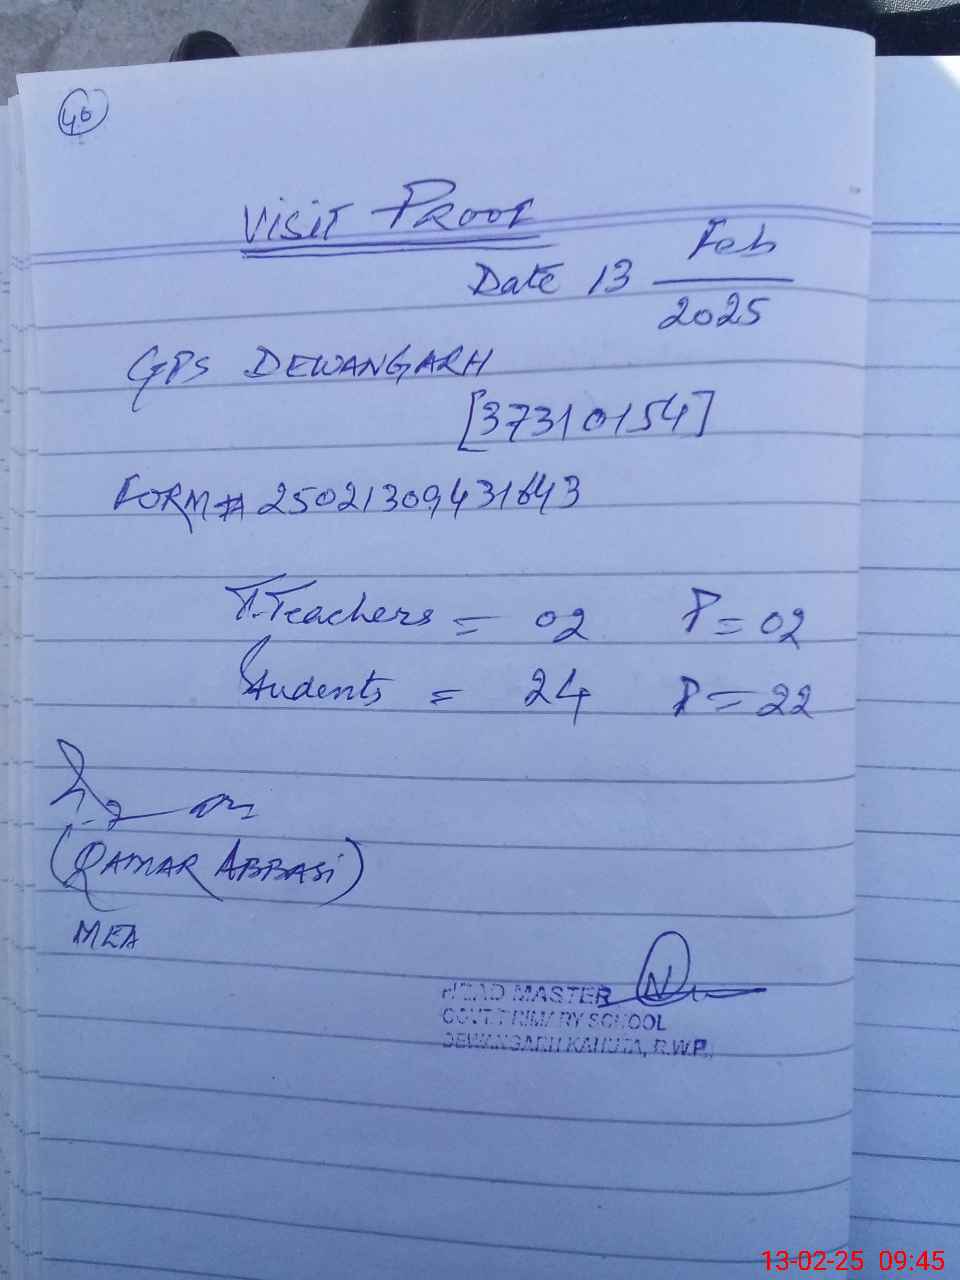 46
Visit Proof
Date 13 Feb
2025
GPS DEWANGARH
[37310154]
FORM# 25021309431643
T.Teachers = 02 P = 02
Students = 24 P = 22
(QAMAR ABBASI)
MEA
HEAD MASTER
GOVT. PRIMARY SCHOOL
DEWANGARH KAHUTA, R.W.P.
13-02-25 09:45